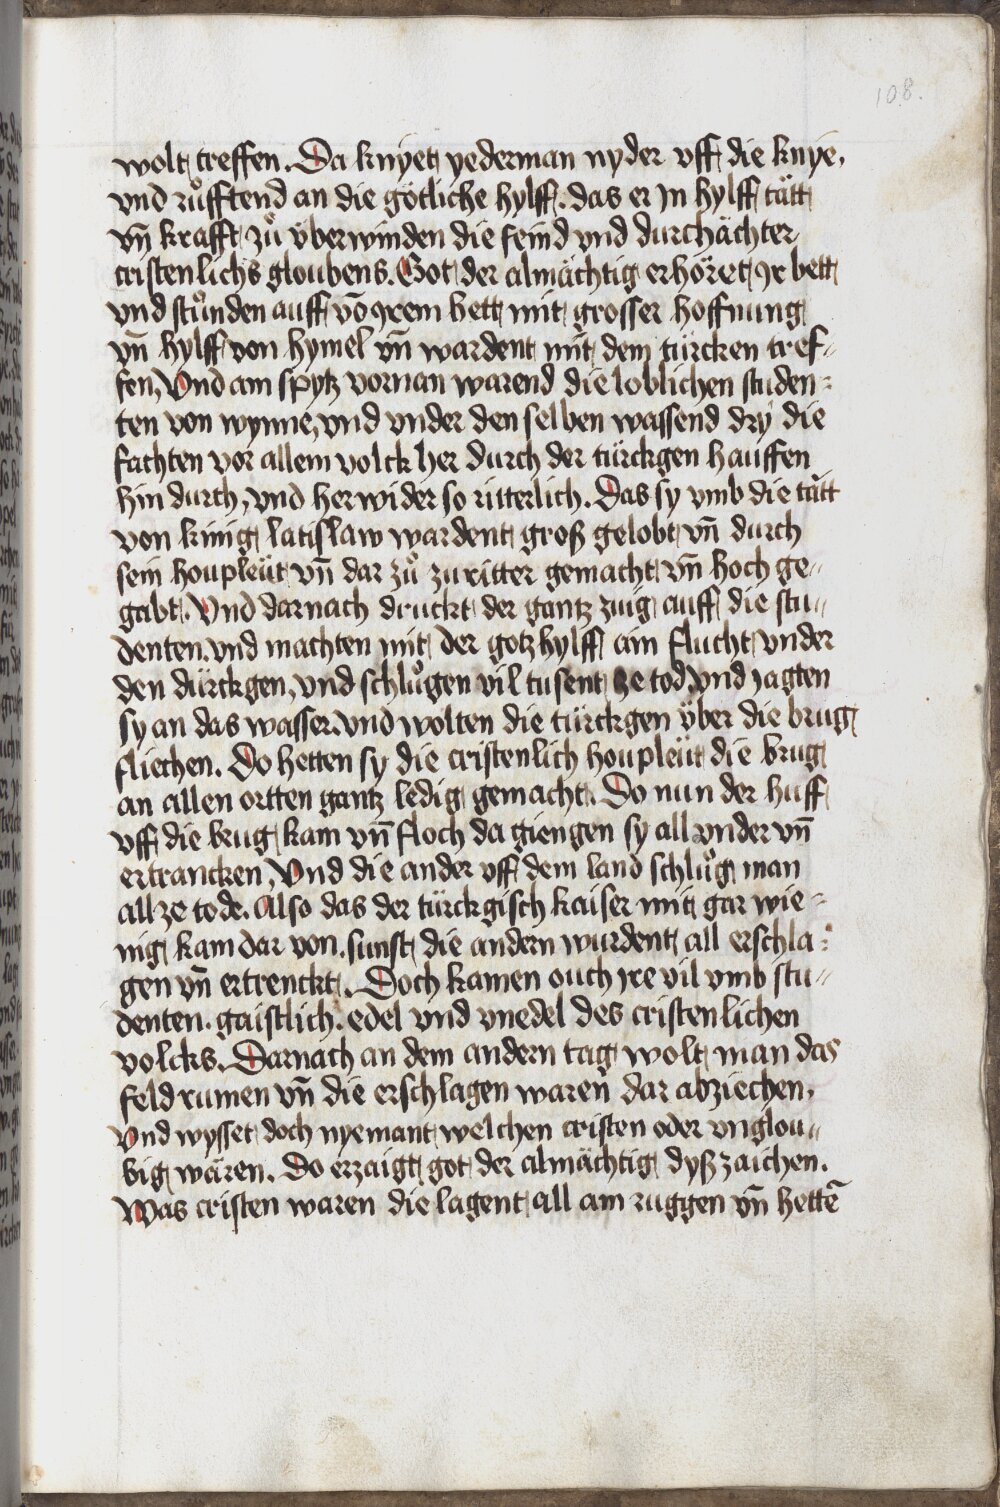 108.
wolt treffen. Da knÿet yederman nyder vff die knye,
vnd růfftend an die götliche hylff. das er jn hylff tätt
vn̄ krafft zů überwinden die feind vnd durchächter
cristenlichs gloubens. Got der almächtig erhöret yr bett
vnd stůnden auff vō yrem bett mit grosser hoffnung
vn̄ hylff von hymel vn̄ wardent mit dem türcken tref⸗
fen, Vnd am spytz vornan warend die loblichen studen⸗
ten von wynne, vnd vnder den selben wassend drÿ die
fachten vor allem volck her durch der türckgen hauffen
hin durch, vnd her wider so ritterlich. Das sy vmb die tätt
von kinig latislaw wardent groß gelobt vn̄ durch
sein houpleüt vn̄ dar zů zu ritter gemacht vn̄ hoch ge⸗
gabt. Vnd darnach druckt der gantz zuig auff die stu⸗
denten. vnd machten mit der gotz hylff ain flucht vnder
den dürckgen, vnd schlůgen vil tusent ze tod, vnd jagten
sy an das wasser. vnd wolten die türckgen über die brug
fliechen. Do hetten sy die cristenlich houpleüt die brug
an allen ortten gantz ledig gemacht. Do nun der huff
vff die brug kam vn̄ floch da giengen sy all vnder vn̄
ertrancken, Vnd die ander vff dem land schlůg man
all ze tode. Also das der türckgisch kaiser mit gar wie⸗
nig kam dar von. sunst die andern wurdent all erschla⸗
gen vn̄ ertrenckt. Doch kamen ouch jre vil vmb stu⸗
denten. gaistlich. edel vnd vnedel des cristenlichen
volcks. Darnach an dem andern tag wolt man das
feld rumen vn̄ die erschlagen waren dar abziechen,
Vnd wysset doch nyemant welchen cristen oder vnglou⸗
big wären. Do erzaigt got der almächtig dyß zaichen.
Was cristen waren die lagent all am ruggen vn̄ hettē